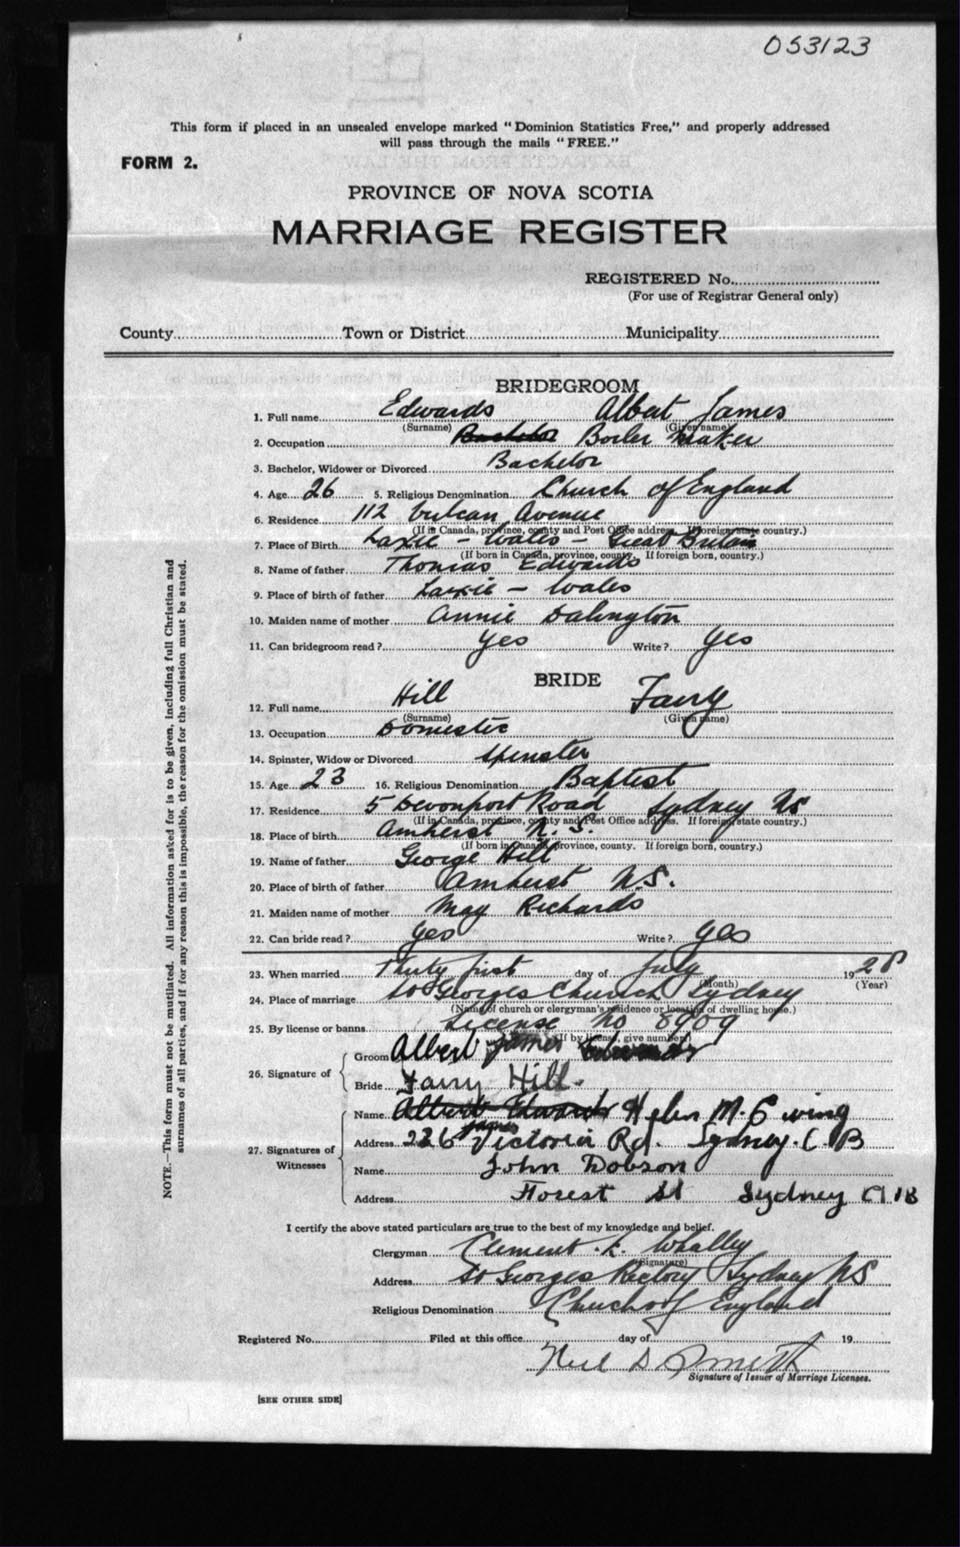 053123
This form if placed in an unsealed envelope marked "Dominion Statistics Free," and properly addressed
will pass through the mails "FREE."
FORM 2.
PROVINCE OF NOVA SCOTIA
MARRIAGE REGISTER
REGISTERED No.
(For use of Registrar General only)
County Town or District Municipality
BRIDEGROOM
1. Full name Edwards Albert James
(Surname) (Given name)
2. Occupation Bachelor Boiler Maker
3. Bachelor, Widower or Divorced Bachelor
4. Age 26 5. Religious Denomination Church of England
6. Residence 112 Vulcan Avenue
(If in Canada, province, county and Post Office address. If foreign state country.)
7. Place of Birth Laxie - Wales - Great Britain
(If born in Canada, province, county. If foreign born, country.)
8. Name of father Thomas Edwards
9. Place of birth of father Laxie - Wales
10. Maiden name of mother Annie
11. Can bridegroom read? Yes Write? Yes
BRIDE
12. Full name Hill Fairy
(Surname) (Given name)
13. Occupation Domestic
14. Spinster, Widow or Divorced Spinster
15. Age 23 16. Religious Denomination Baptist
17. Residence 5 Devonport Road Sydney NS
(If in Canada, province, county and Post Office address. If foreign state country.)
18. Place of birth Amherst N.S.
(If born in Canada, province, county. If foreign born, country.)
19. Name of father George Hill
20. Place of birth of father Amherst N.S.
21. Maiden name of mother May Richards
22. Can bride read? Yes Write? Yes
23. When married Thirty first day of July 1928
(Month) (Year)
24. Place of marriage St Georges Church Sydney
(Name of church or clergyman's residence or location of dwelling house.)
25. By license or banns License No 8909
(If by license, give number)
26. Signature of
Groom Albert James Edwards
Bride Fairy Hill.
27. Signatures of Witnesses
Name Albert Edwards Helen M. Ewing
James
Address 226 Victoria Rd. Sydney. C. B
Name John Dobson
Address Forest St Sydney C.B
I certify the above stated particulars are true to the best of my knowledge and belief.
Clergyman Clement. K. Whalley
(Signature)
Address St Georges Rectory Sydney NS
Religious Denomination Church of England
Registered No. Filed at this office day of 19
Neil D Smith
Signature of Issuer of Marriage Licenses.
[SEE OTHER SIDE]
NOTE.—This form must not be mutilated. All information asked for is to be given, including full Christian and
surnames of all parties, and if for any reason this is impossible, the reason for the omission must be stated.